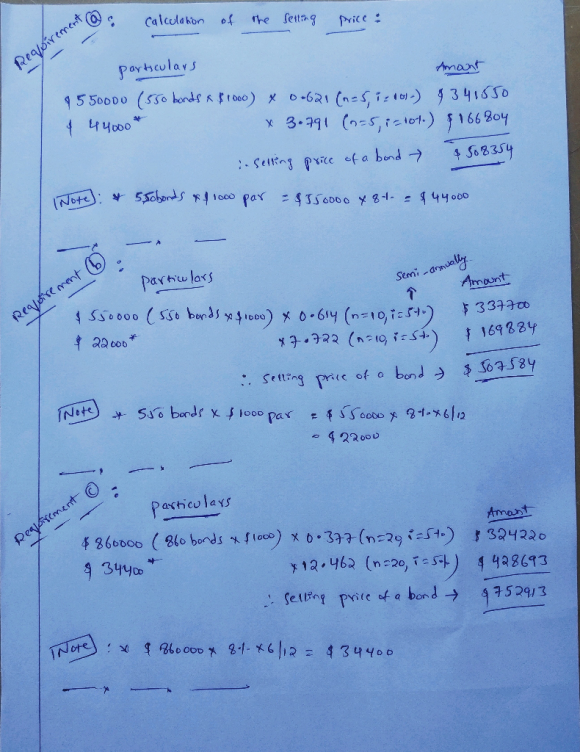 Requirement (a) : Calculation of the Selling Price :
particulars Amount
$ 550000 ( 550 bonds x $1000) x 0.621 (n=5, i=10%) $ 341550
$ 44000* x 3.791 (n=5, i=10%) $ 166804
∴ Selling price of a bond → $ 508354
Note : * 550 bonds x $ 1000 par = $ 550000 x 8% = $ 44000
Requirement (b) :
particulars semi-annually Amount
$ 550000 ( 550 bonds x $1000) x 0.614 (n=10, i=5%) $ 337700
$ 22000* x 7.722 (n=10, i=5%) $ 169884
∴ Selling price of a bond → $ 507584
Note * 550 bonds x $ 1000 par = $ 550000 x 8% x 6/12
= $ 22000
Requirement (c) :
particulars Amount
$ 860000 ( 860 bonds x $1000) x 0.377 (n=20, i=5%) $ 324220
$ 34400* x 12.462 (n=20, i=5%) $ 428693
∴ Selling price of a bond → $ 752913
Note : * $ 860000 x 8% x 6/12 = $ 34400